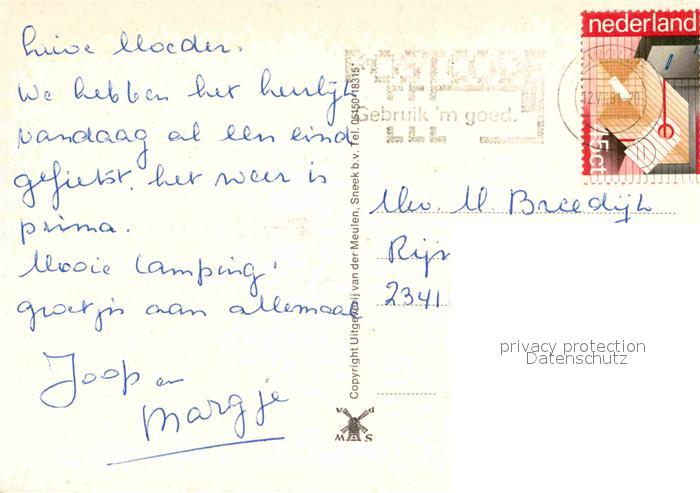 Lieve Moeder.
We hebben het heerlijk
vandaag al een eind
gefietst, het weer is
prima.
Mooie Camping!
groetjes aan allemaal
Joop en
Margje
Copyright Uitgeverij van der Meulen, Sneek b.v. Tel. 05150-18315*
POSTCODE
Gebruik 'm goed.
nederland
45ct
Mw. M. Breedijk
Rijn
2341
privacy protection
Datenschutz